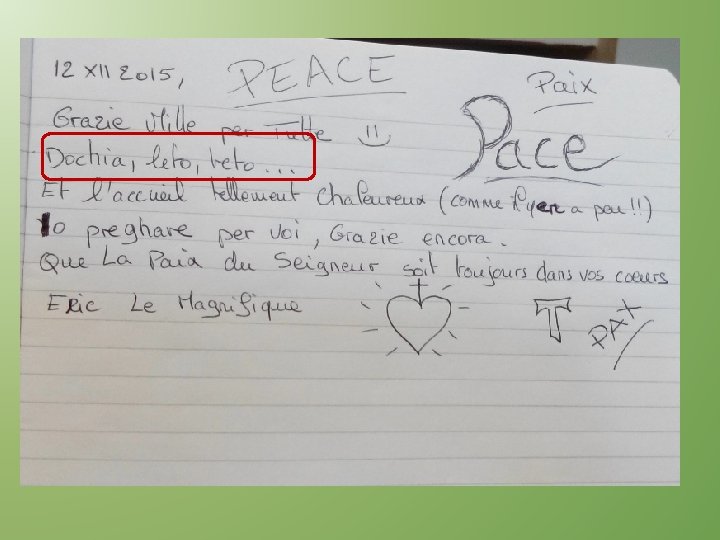 12 XII 2015, PEACE Paix
Grazie Mille per Tutte Pace
Dochia, leto, teto...
Et l'accueil tellement Chaleureux (comme il y en a peu!!)
Io preghare per Voi, Grazie encora.
Que La Paix du Seigneur soit toujours dans vos coeurs
Eric Le Magnifique T PAX